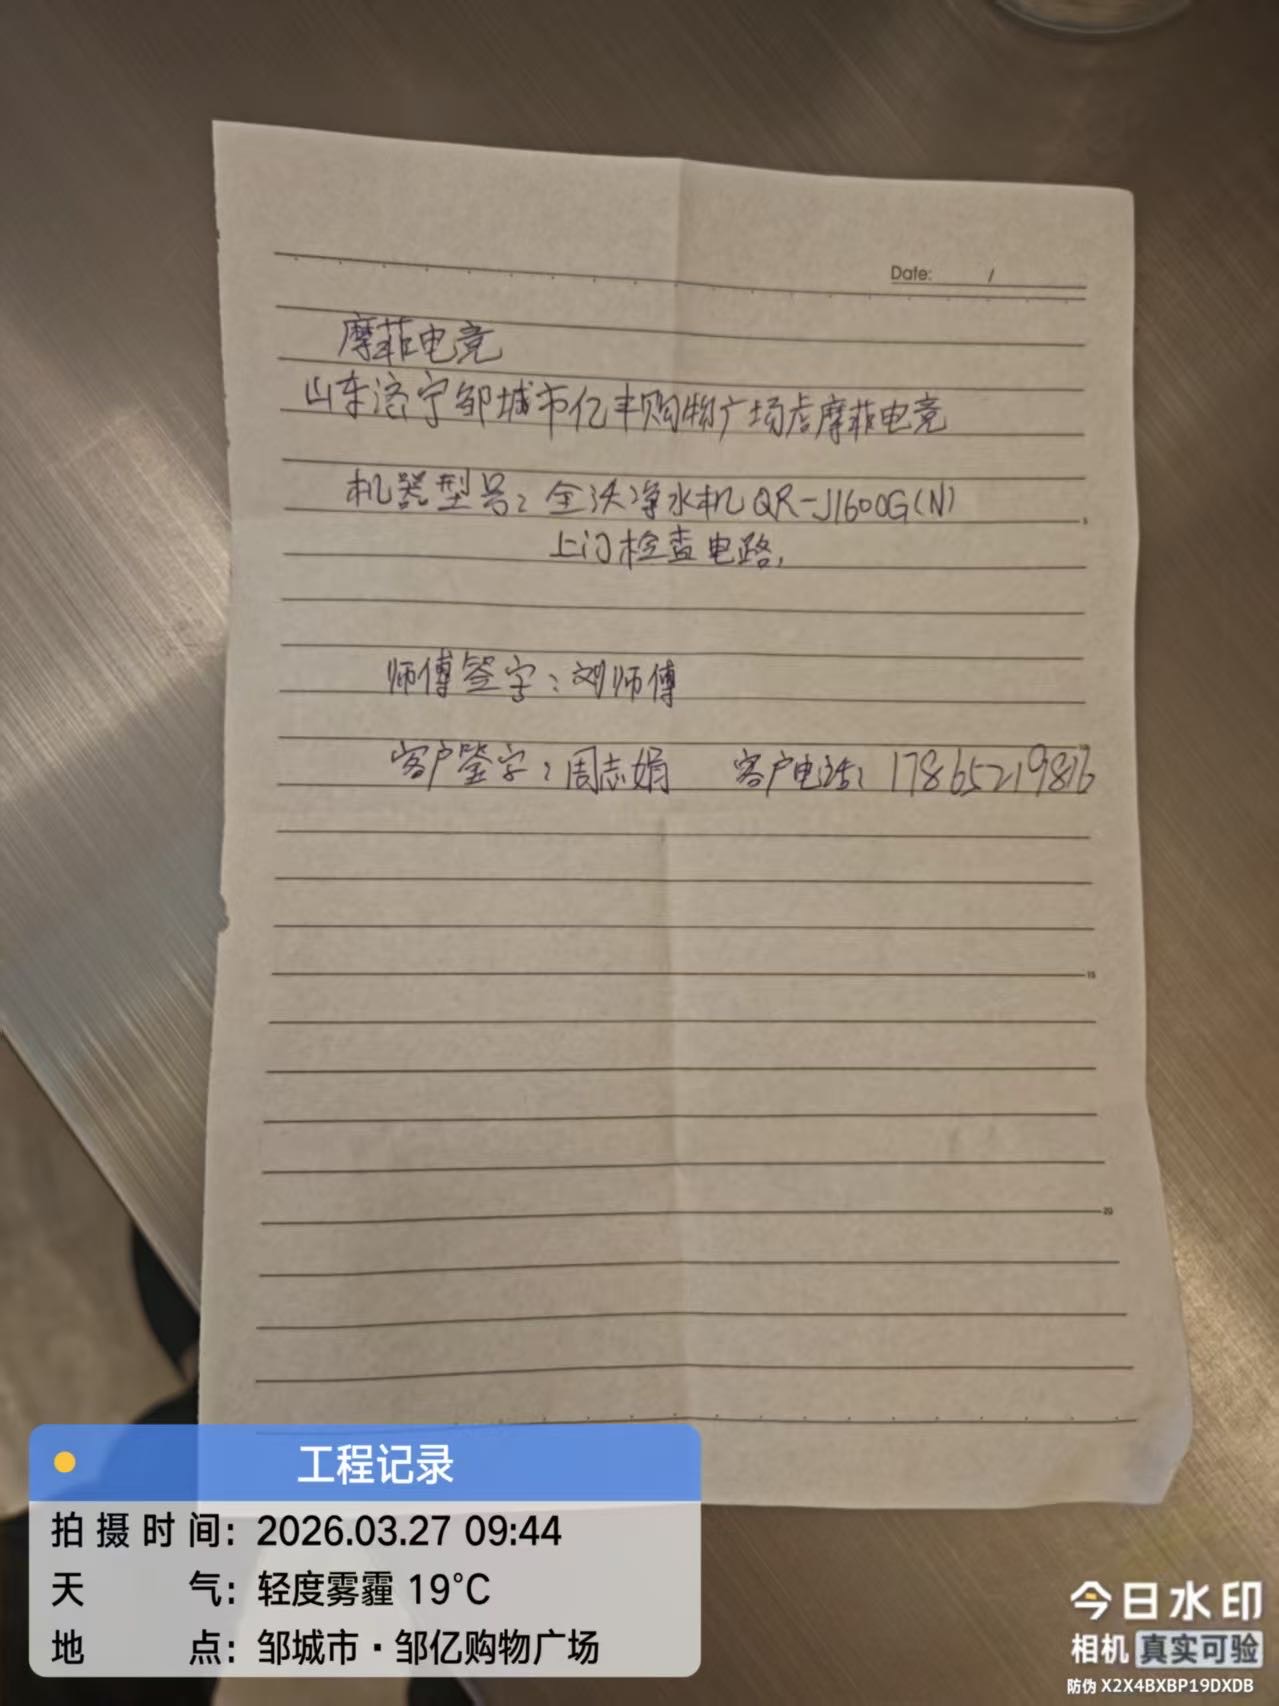 Date: /
摩菲电竞
山东济宁邹城市亿丰购物广场店摩菲电竞
机器型号：全沃净水机QR-J1600G(N)
上门检查电路，
师傅签字：刘师傅
客户签字：周志娟 客户电话：17865219816
5
15
20
工程记录
拍摄时间：2026.03.27 09:44
天气：轻度雾霾 19°C
地点：邹城市·邹亿购物广场
今日水印
相机 真实可验
防伪 X2X4BXBP19DXDB